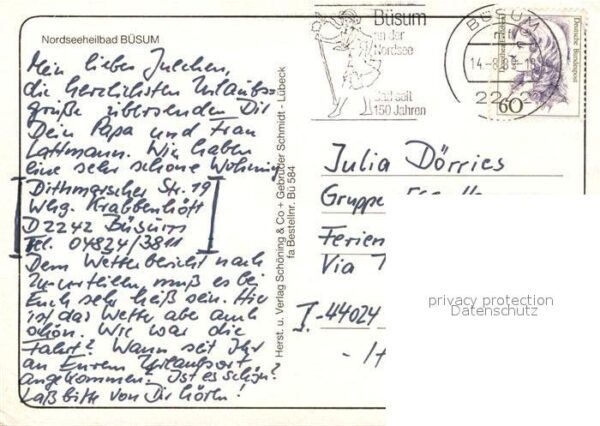 Nordseeheilbad BÜSUM
Mein liebes Julchen,
die herzlichsten Urlaubs-
grüße übersenden Dir
Dein Papa und Frau
Lattmann. Wir haben
eine sehr schöne Wohnung
Dithmarscher Str. 19
Whg. Krabbenhöft
D 2242 Büsum
Tel. 04834/3811
Dem Wetterbericht nach
zu urteilen, muß es bei
Euch sehr heiß sein. Hier
ist das Wetter aber auch
schön. Wie war die
Fahrt? Wann seit Ihr
an Eurem Urlaubsort
angekommen? Ist es schön?
Laß bitte von Dir hören!
Herst. u. Verlag Schöning & Co + Gebrüder Schmidt - Lübeck
fa Bestellnr. Bü 584
Büsum
an der
Nordsee
Bad seit
150 Jahren
BÜSUM
14.-8.
Deutsche Bundespost
60
Julia Dörries
Gruppe
Ferien
Via
I-44024
privacy protection
Datenschutz